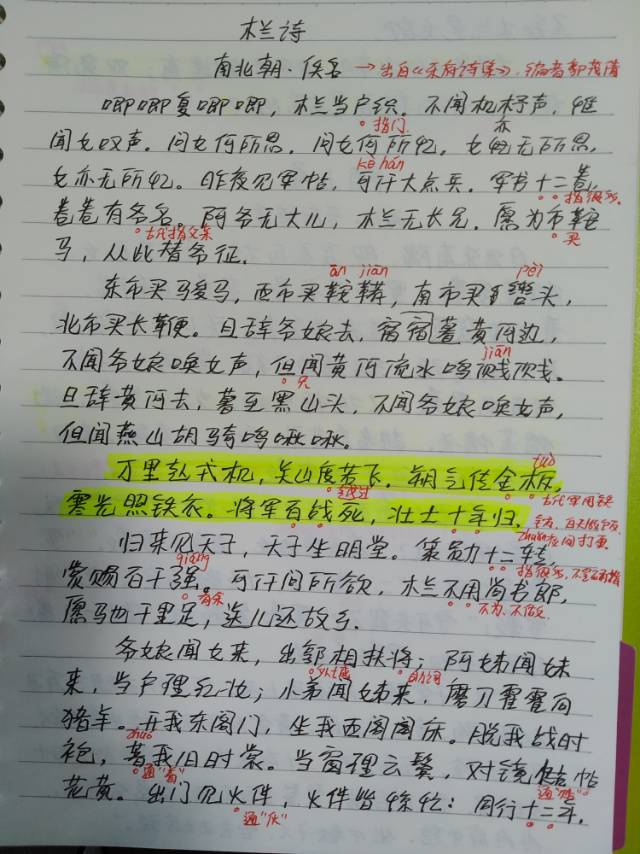 木兰诗
南北朝·佚名 →出自《乐府诗集》,编者郭茂倩
唧唧复唧唧，木兰当户织，不闻机杼声，惟
指门 亦
闻女叹声。问女何所思，问女何所忆，女无所思，
kè hán
女亦无所忆。昨夜见军帖，可汗大点兵。军书十二卷，
指很多
卷卷有爷名。阿爷无大儿，木兰无长兄。愿为市鞍
古代指父亲 买
马，从此替爷征。
ān jiān pèi
东市买骏马，西市买鞍鞯，南市买辔头，
北市买长鞭。旦辞爷娘去，宿薯黄河边，
jiān
不闻爷娘唤女声，但闻黄河流水鸣溅溅。
只
旦辞黄河去，暮至黑山头，不闻爷娘唤女声，
但闻燕山胡骑鸣啾啾。
tuò
万里赴戎机，关山度若飞。朔气传金柝，
越过 古代军用铁
寒光照铁衣。将军百战死，壮士十年归。
zhuǎn 夜间打更
归来见天子，天子坐明堂。策勋十二转，
qiáng 指很多，不是确指
赏赐百千强。可汗问所欲，木兰不用尚书郎，
有余 不为，不做
愿马也千里足，送儿还故乡。
爷娘闻女来，出郭相扶将；阿姊闻妹
外城 助词
来，当户理红妆；小弟闻姊来，磨刀霍霍向
猪羊。开我东阁门，坐我西阁间床。脱我战时
zhuó
袍，著我旧时裳。当窗理云鬓，对镜帖
通“着” 通“贴”
花黄。出门见火伴，火伴皆惊忙：同行十二年，
通“伙”